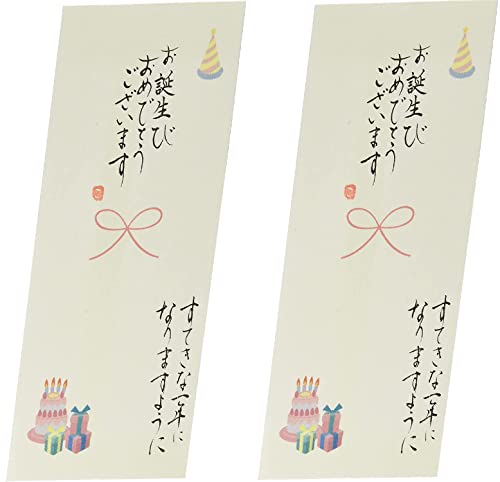 お誕生び
おめでとう
ございます
すてきな一年に
なりますように
お誕生び
おめでとう
ございます
すてきな一年に
なりますように